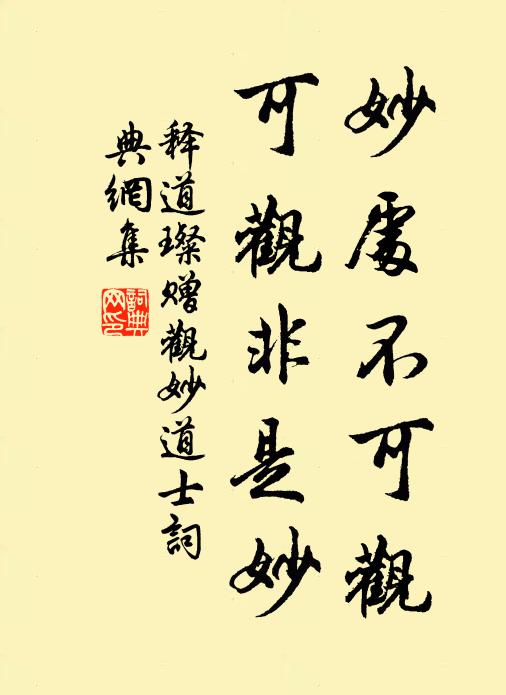 妙處不可觀
可觀非是妙
释道璨赠觀妙道士詞
典網集
詞典
网印